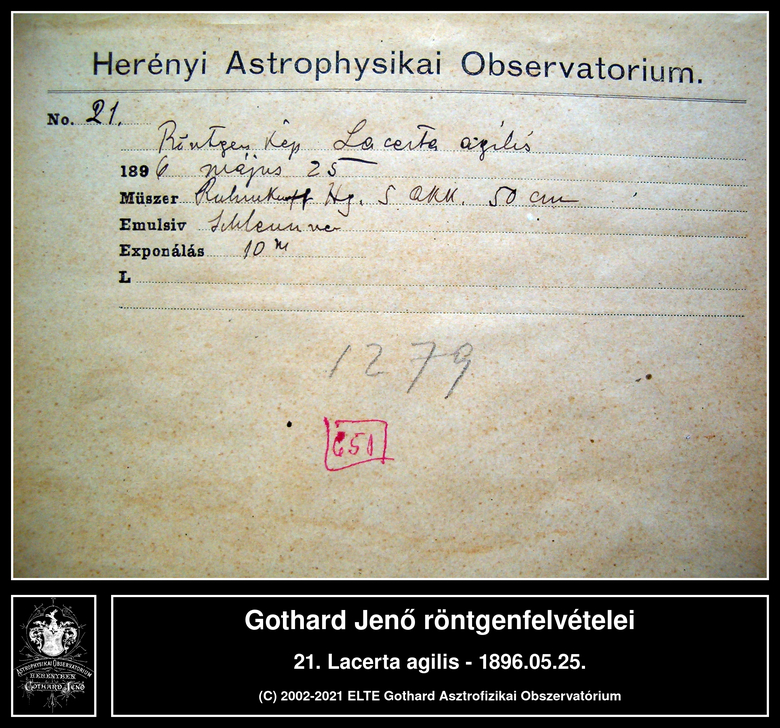 Herényi Astrophysikai Observatorium.
No. 21.
Röntgen Kép Lacerta agilis
1896 május 25
Műszer Ruhmkorff Hg. 5 akk. 50 cm
Emulsiv Schleussner
Exponálás 10 m
L
1279
651
Gothard Jenő röntgenfelvételei
21. Lacerta agilis - 1896.05.25.
(C) 2002-2021 ELTE Gothard Asztrofizikai Obszervatórium
ASTROPHYSIKAI OBSERVATORIUM
HERÉNYBEN
GOTHARD JENŐ